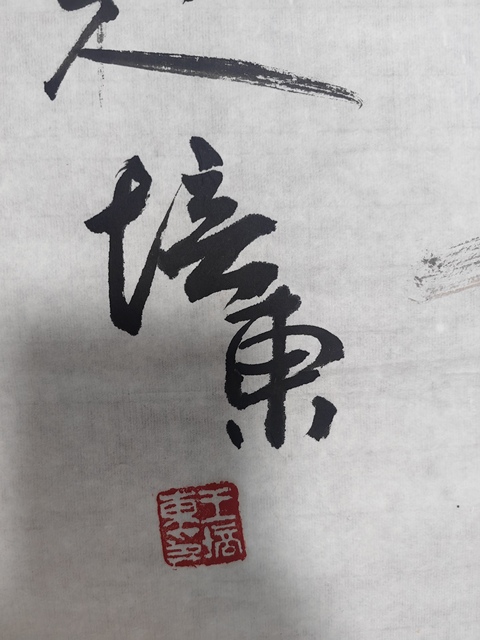 培東
王培
東印